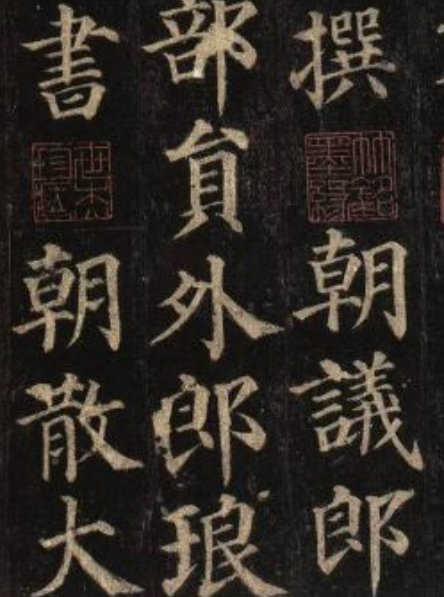 撰朝議郎
部貟外郎琅
書朝散大